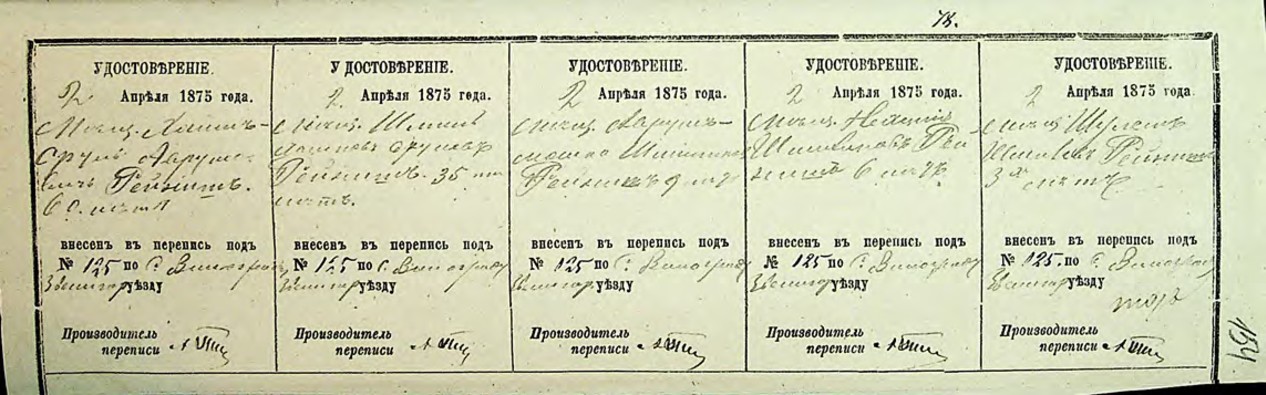 78.
УДОСТОВѢРЕНІЕ.
2 Апрѣля 1875 года.
Мѣщ. Хаимъ-
Сруль Ааруно-
вичъ Рейнишъ.
60. лѣтъ
внесенъ въ перепись подъ
№ 125 по С. Виноград
Звенигор уѣзду
Производитель
переписи
УДОСТОВѢРЕНІЕ.
2 Апрѣля 1875 года.
Мѣщ. Шмиль
Хаимовъ Срулевъ
Рейнишъ. 35 ти
лѣтъ.
внесенъ въ перепись подъ
№ 125 по С. Винограду
Звенигор уѣзду
Производитель
переписи
УДОСТОВѢРЕНІЕ.
2 Апрѣля 1875 года.
Мѣщ. Аарунъ-
Мошко
Рейнишъ 9 лѣтъ
внесенъ въ перепись подъ
№ 125 по С. Винограду
Звенигор уѣзду
Производитель
переписи
УДОСТОВѢРЕНІЕ.
2 Апрѣля 1875 года.
Мѣщ.
Шмилевъ Рей
нишъ 6 лѣтъ
внесенъ въ перепись подъ
№ 125 по С. Винограду
Звенигор уѣзду
Производитель
переписи
УДОСТОВѢРЕНІЕ.
2 Апрѣля 1875 года
Мѣщ. Шулемъ
Шмилевъ Рейнишъ
3хъ лѣтъ
внесенъ въ перепись подъ
№ 125. по С. Винограду
Звенигор уѣзду
Производитель
переписи
154